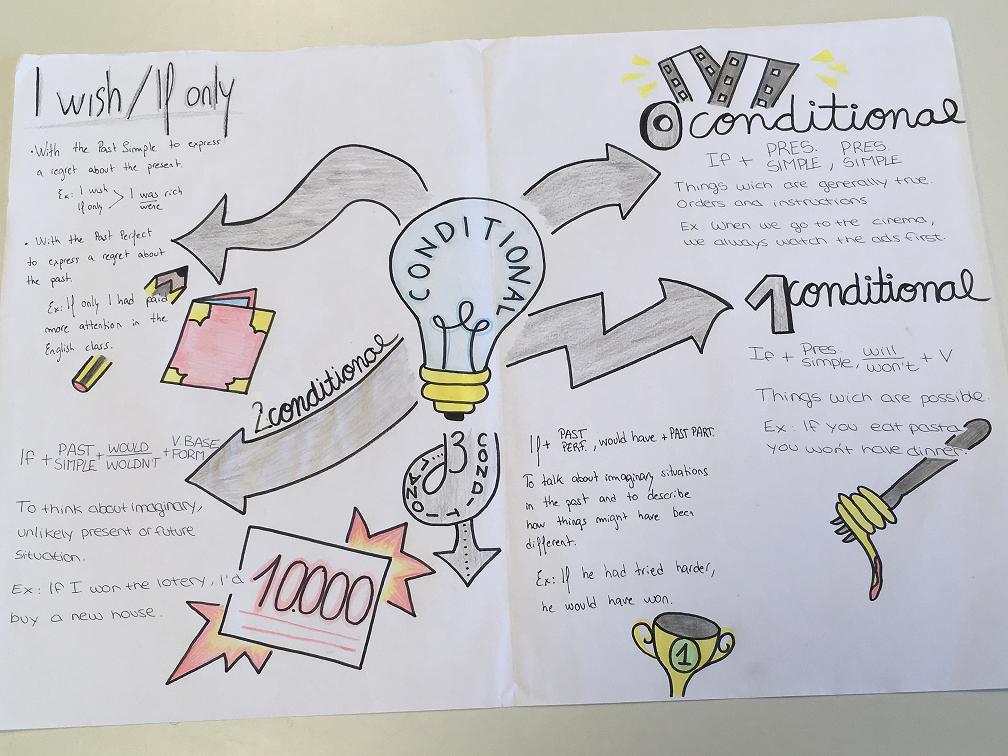 I wish/If only
• With the Past Simple to express
a regret about the present.
Ex: I wish
If only > I was rich
were
• With the Past Perfect
to express a regret about
the past.
Ex: If only I had paid
more attention in the
English class.
CONDITIONAL
0 conditional
If + PRES. SIMPLE, PRES. SIMPLE
Things wich are generally true.
Orders and instructions
Ex: When we go to the cinema,
we always watch the ads first.
1 conditional
If + Pres. simple, will/won't + V
Things wich are possible.
Ex: If you eat pasta
you won't have dinner.
2 conditional
If + PAST SIMPLE + WOULD/WOLDN'T + V.BASE FORM
To think about imaginary,
unlikely present or future
situation.
Ex: If I won the lotery, I'd
buy a new house.
10.000
3 CONDITIONAL
If + PAST PERF., would have + PAST PART.
To talk about imaginary situations
in the past and to describe
how things might have been
different.
Ex: If he had tried harder,
he would have won.
1